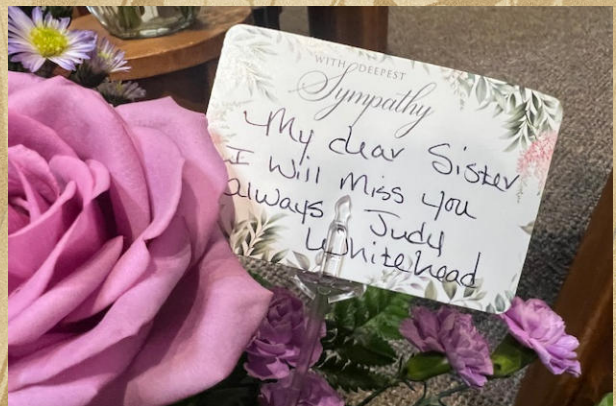 WITH DEEPEST
Sympathy
My dear Sister
I Will Miss you
always Judy
Whitehead